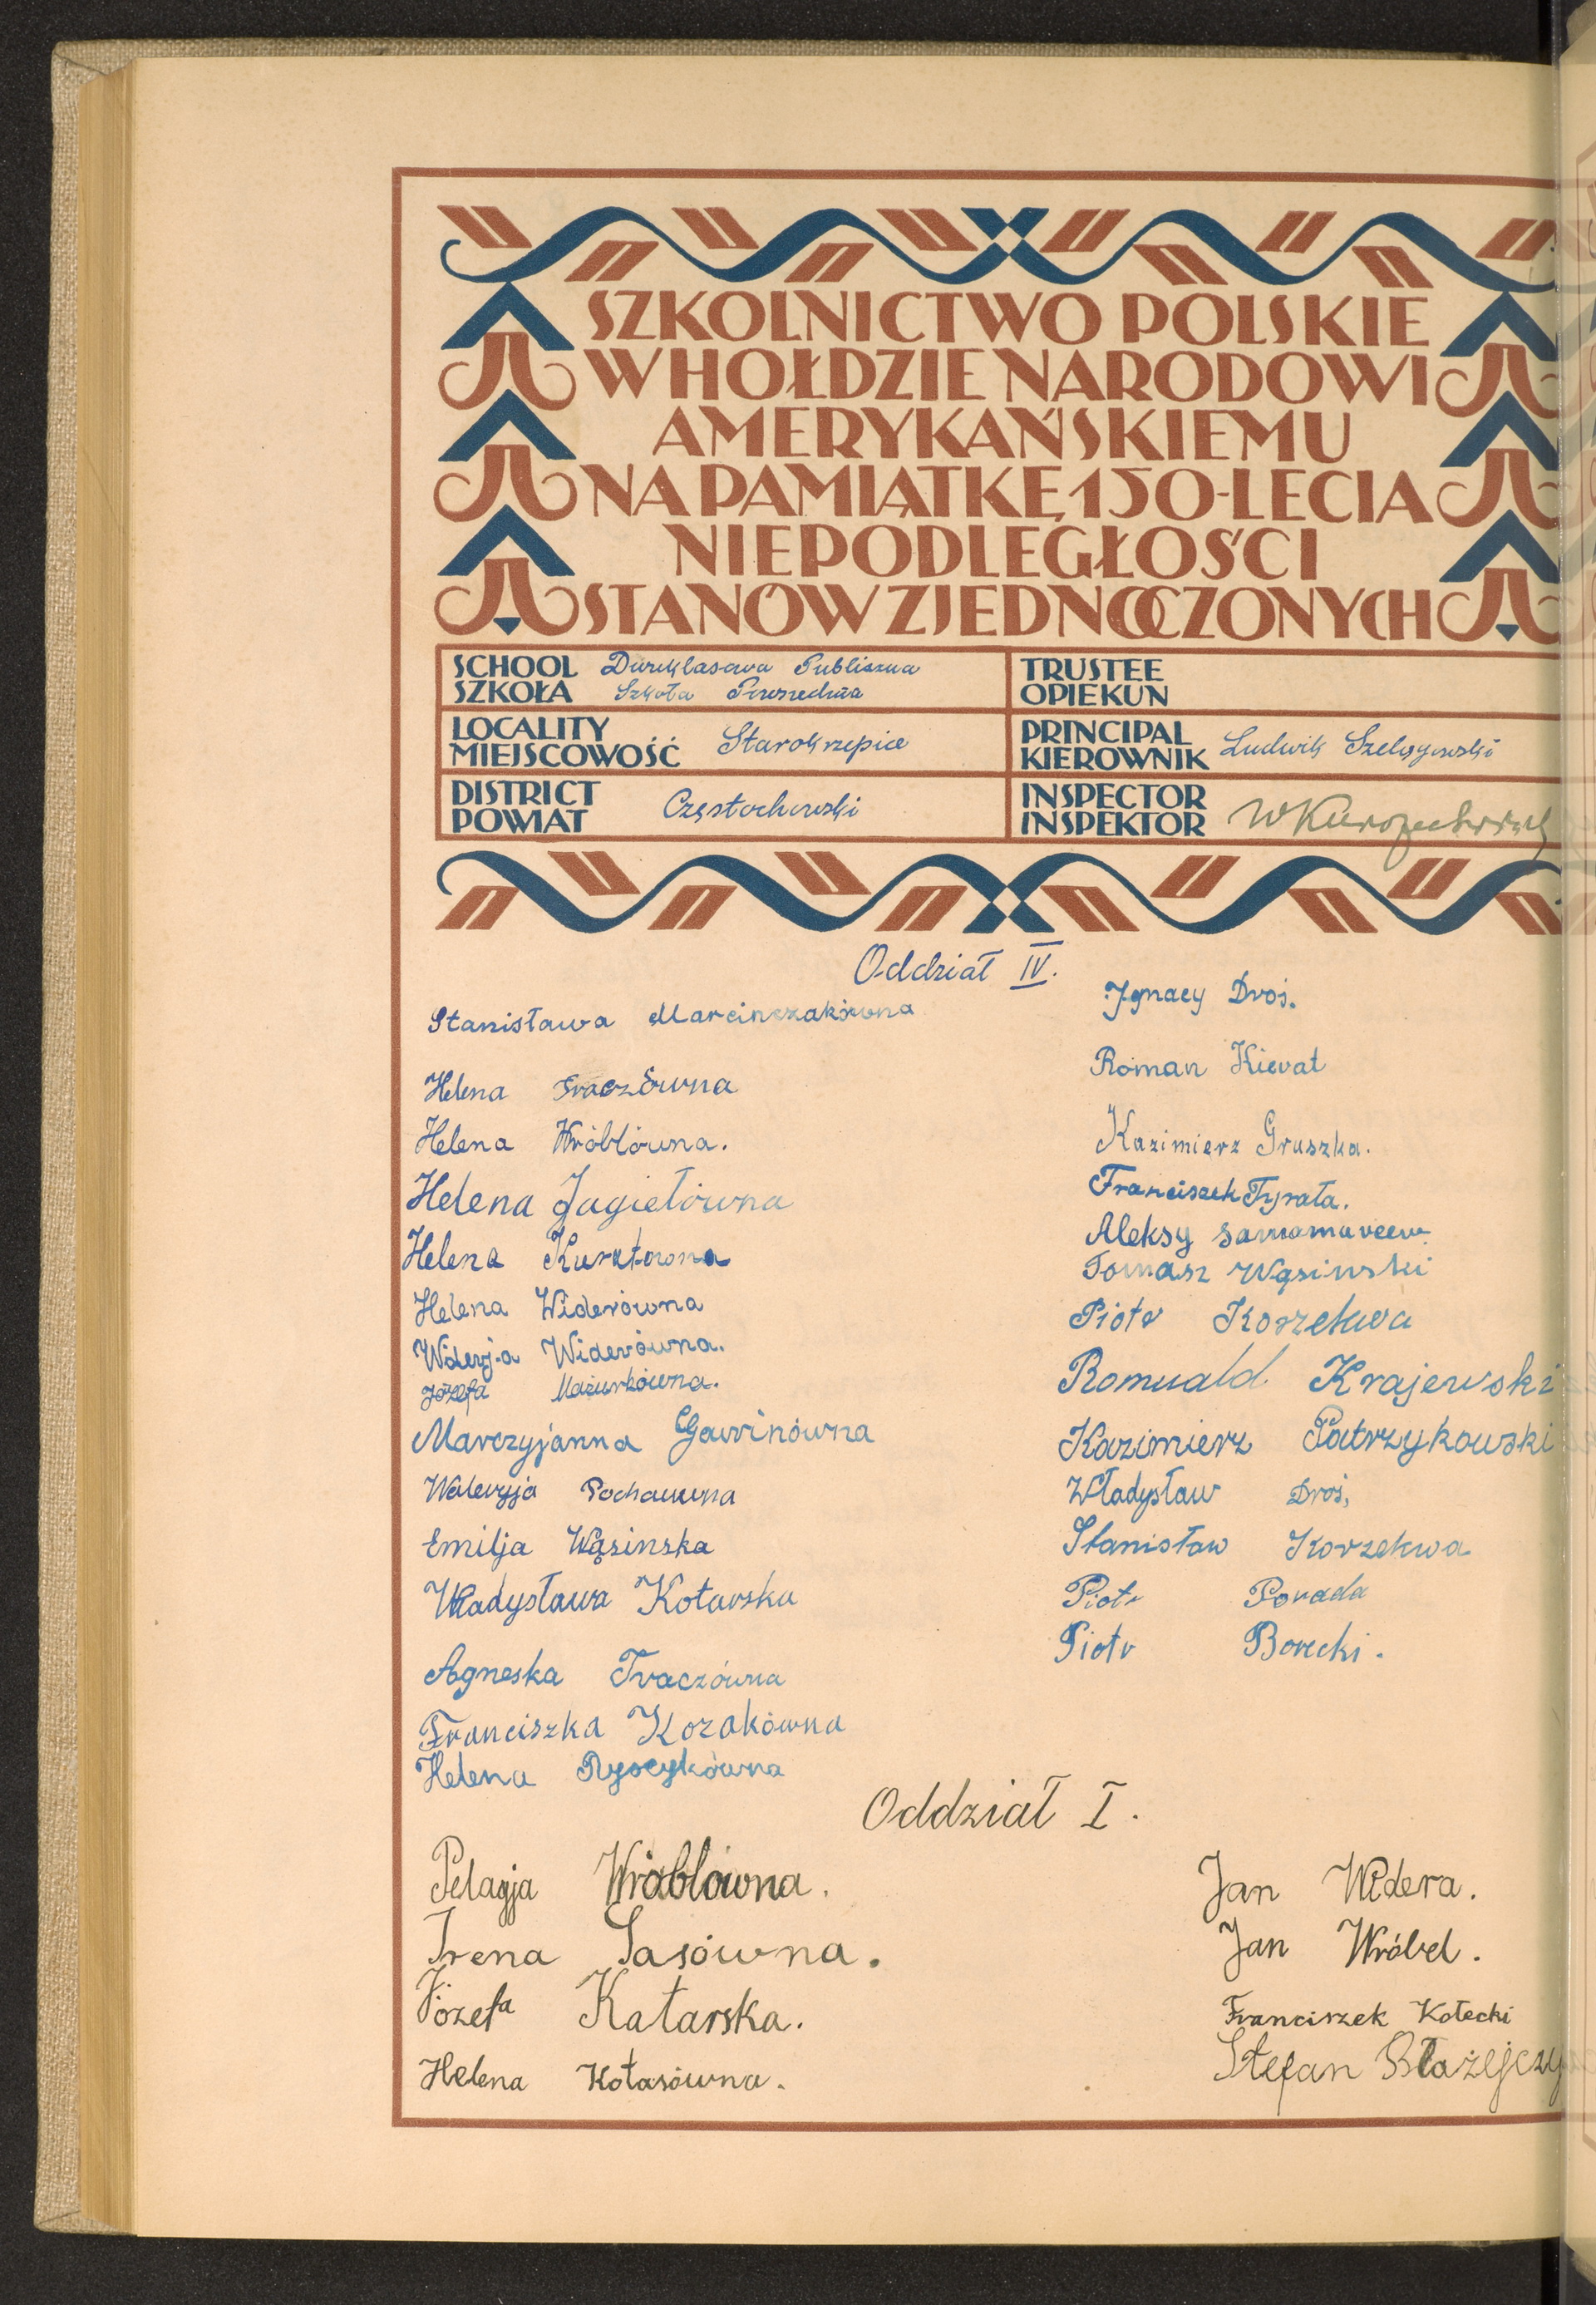 SZKOLNICTWO POLSKIE
W HOŁDZIE NARODOWI
AMERYKAŃSKIEMU
NA PAMIĄTKĘ 150-LECIA
NIEPODLEGŁOŚCI
STANÓW ZJEDNOCZONYCH
SCHOOL
SZKOŁA
Dwuklasowa Publiczna
Szkoła Powszechna
TRUSTEE
OPIEKUN
LOCALITY
MIEJSCOWOŚĆ
Starokrzepice
PRINCIPAL
KIEROWNIK
Ludwik Szelągowski
DISTRICT
POWIAT
Częstochowski
INSPECTOR
INSPEKTOR
Oddział IV.
Stanisława Marcinczakówna
Helena
Helena Wróblówna.
Helena Jagiełówna
Helena
Helena Widerówna
Widerówna.
Józefa Mazurkówna.
Marczyjanna Gawinówna
Waleryja
Emilja Wąsinska
Władysława Kotarska
Agneska Traczówna
Franciszka Kozakówna
Helena
Ignacy Droś.
Roman Kierat
Kazimierz Gruszka.
Franciszek Tyrała.
Aleksy
Tomasz Wąsinski
Piotr Korzekwa
Romuald Krajewski
Kazimierz Patrzykowski
Władysław Droś,
Stanisław Korzekwa
Piotr Porada
Piotr Borecki.
Oddział I.
Pelagja Wróblówna.
Irena Sasówna.
Józefa Katarska.
Helena Kotasówna.
Jan Widera.
Jan Wróbel.
Franciszek Kotecki
Stefan